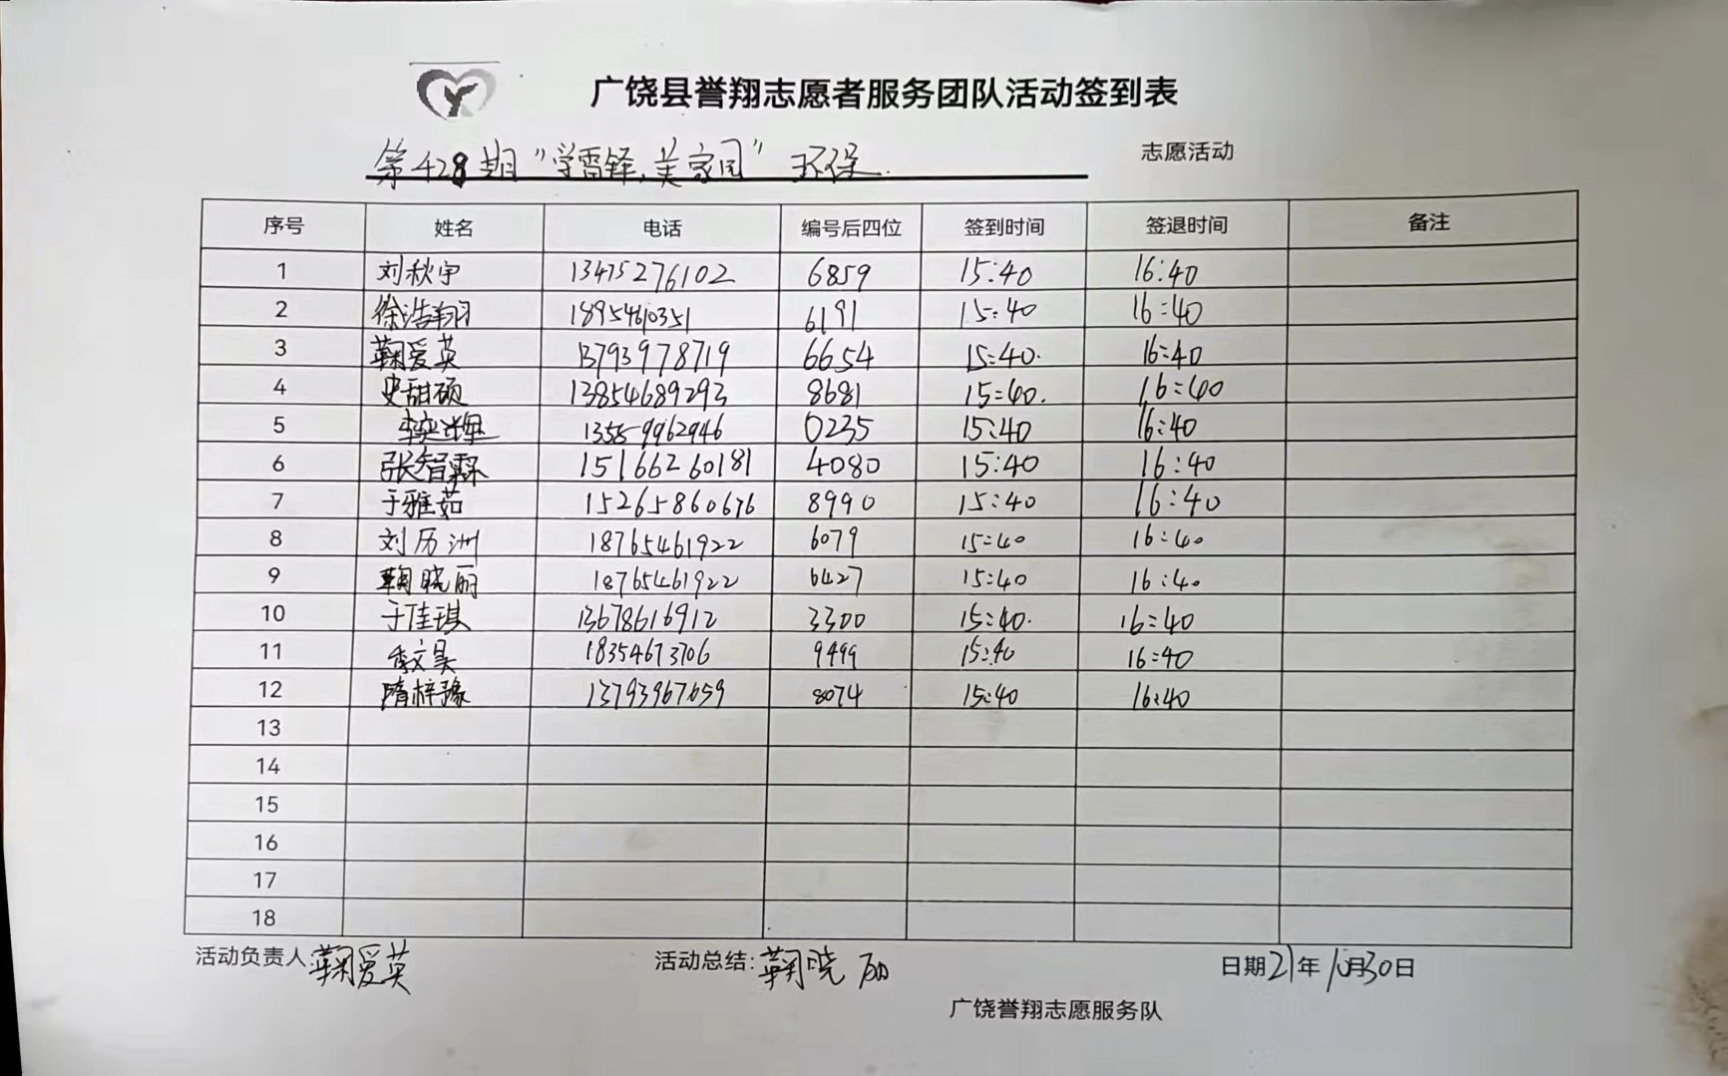 广饶县誉翔志愿者服务团队活动签到表
第428期"学雷锋,美家园"环保. 志愿活动
序号 姓名 电话 编号后四位 签到时间 签退时间 备注
1 刘秋宇 13475276102 6859 15:40 16:40
2 徐浩翔 18954610351 6191 15:40 16:40
3 鞠爱英 13793978719 6654 15:40. 16:40
4 史甜硕 13854689293 8681 15:40. 16:40
5 13589962946 0235 15:40 16:40
6 张智霖 15166260181 4080 15:40 16:40
7 于雅茹 15265860676 8990 15:40 16:40
8 刘历洲 18765461922 6079 15:40 16:40
9 鞠晓丽 18765461922 6427 15:40 16:40
10 于佳琪 13678616912 3300 15:40. 16:40
11 李文昊 18354673706 9499 15:40 16:40
12 隋梓豫 13793967659 8074 15:40 16:40
13
14
15
16
17
18
活动负责人:鞠爱英 活动总结:鞠晓丽 日期21年10月30日
广饶誉翔志愿服务队